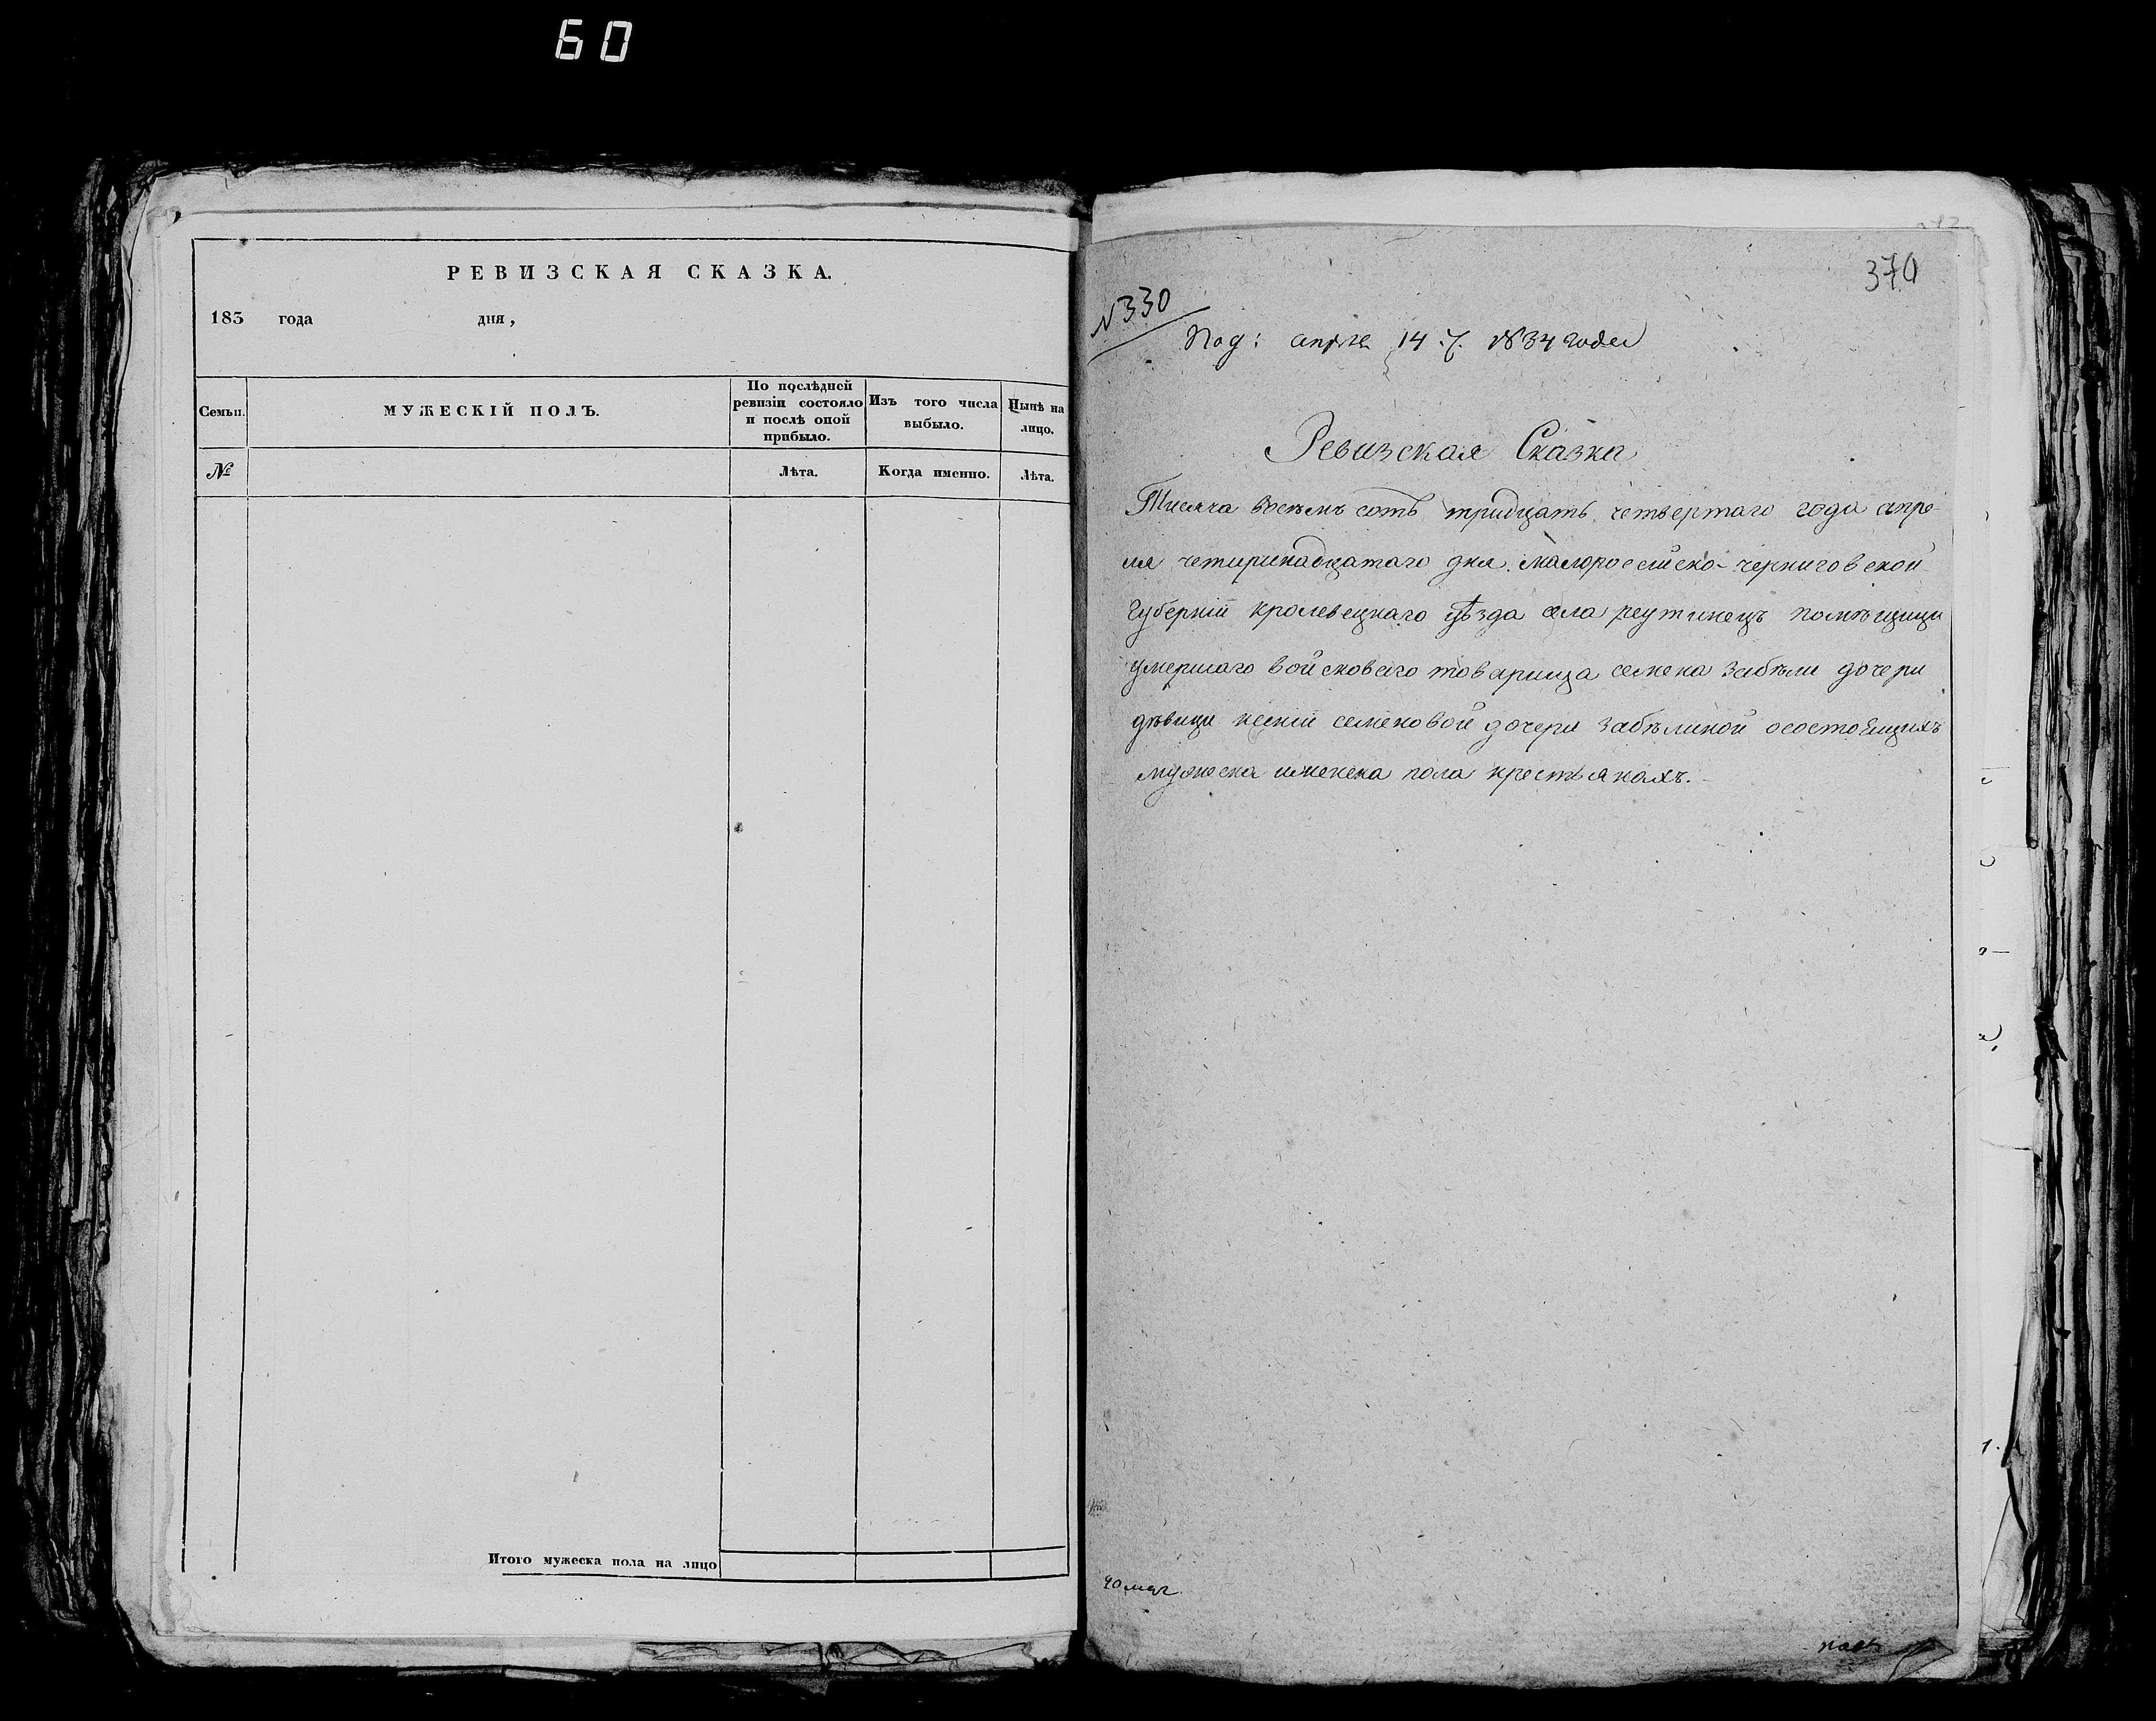 60
РЕВИЗСКАЯ СКАЗКА.
183 года дня,
Семьи.
МУЖЕСКІЙ ПОЛЪ.
По послѣдней ревизіи состояло и послѣ оной прибыло.
Изъ того числа выбыло.
Нынѣ на лицо.
№
Лѣта.
Когда именно.
Лѣта.
Итого мужеска пола на лицо
370
№330
Под: апреля 14 ч. 1834 года
Ревизская Сказка
Тисяча восемь сотъ тридцать четвертаго года апре-
ля четиринадцатаго дня. малороссійско-черниговской
губерніи кролевецкаго уѣзда села реутинецъ помѣщици
умершаго войсковаго товарища семена забѣли дочери
дѣвици ксеніи семеновой дочери забѣлиной осостоящихъ
мужеска иженска пола крестьянахъ.